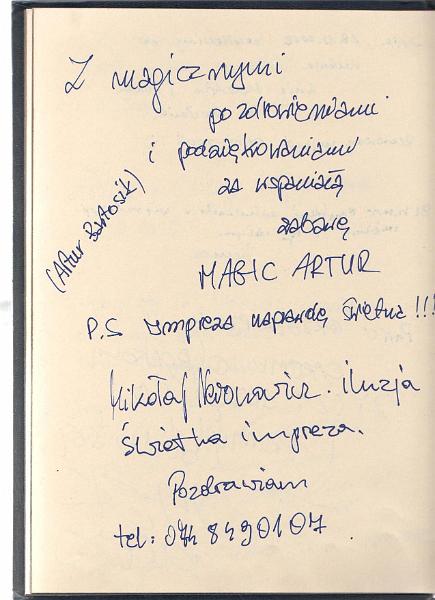 Z magicznymi
pozdrowieniami
i podziękowaniami
za wspaniałą
zabawę
(Artur Bartosik)
MAGIC ARTUR
P.S Impreza naprawdę świetna !!!
Mikołaj iluzja
Świetna impreza.
Pozdrawiam
tel: 074 8490107